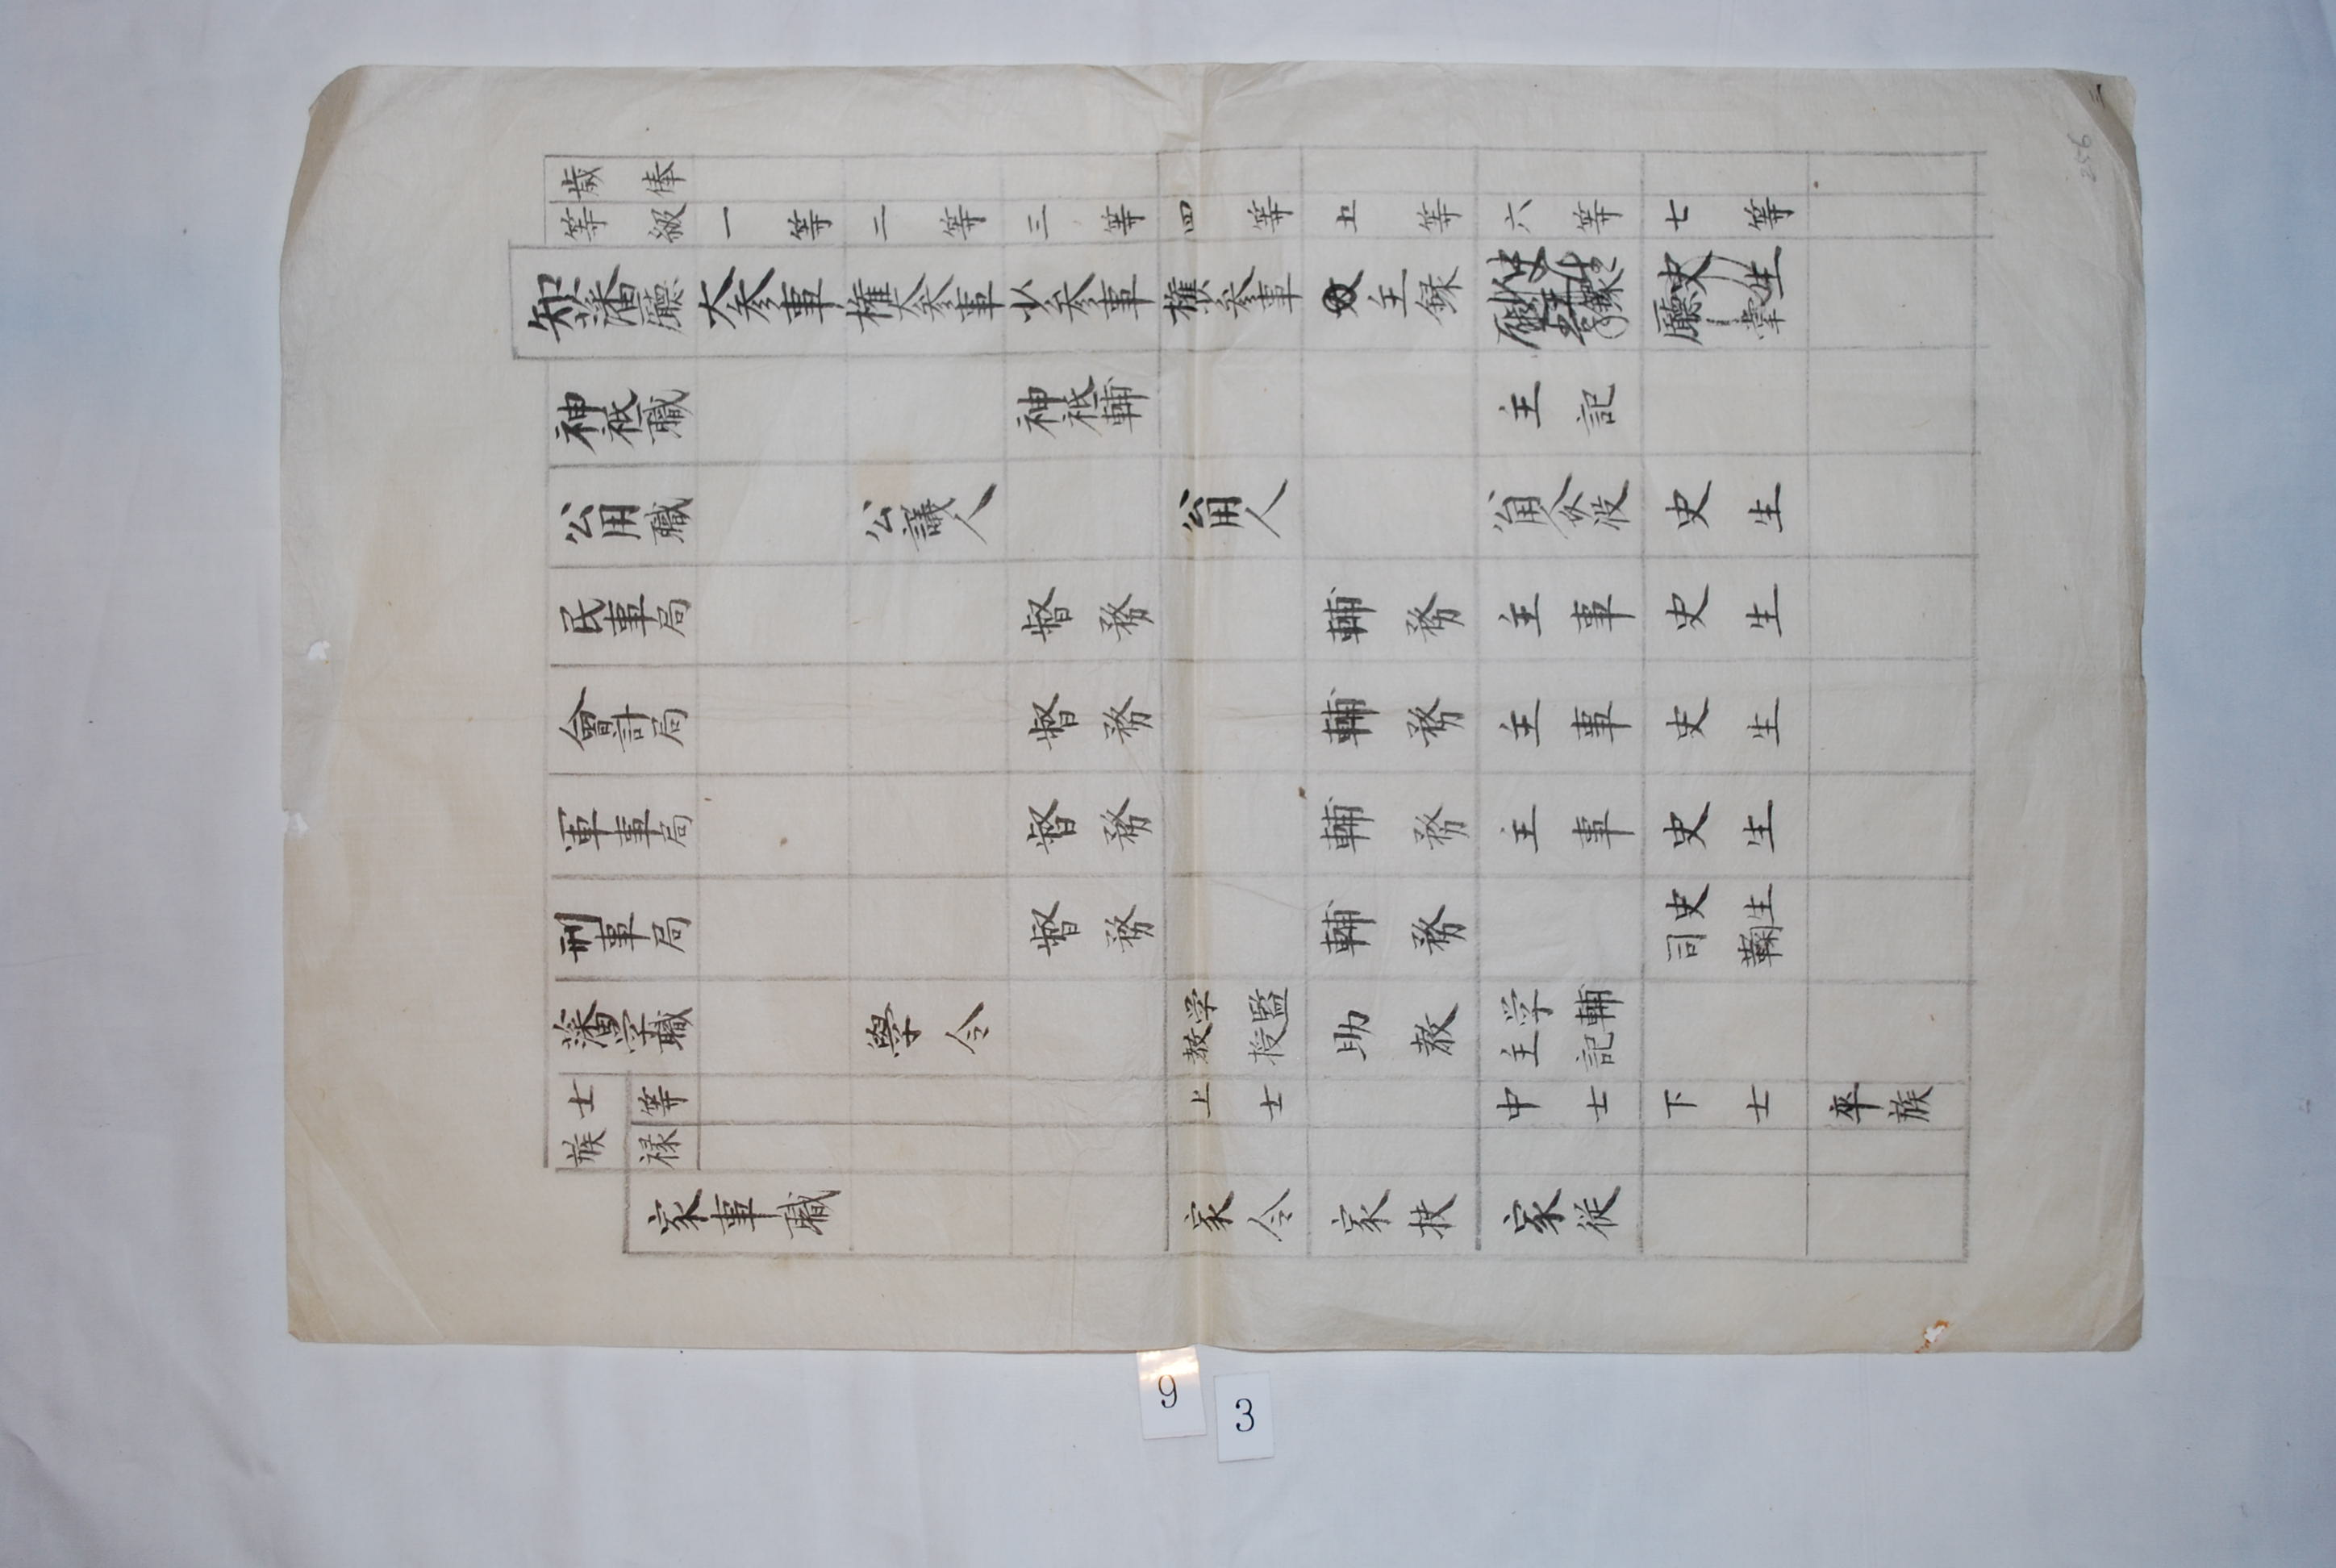 三
256
歳俸
等級 一等 二等 三等 四等 五等 六等 七等
知藩廳 大参事 権大参事 少参事 権少参事 主録 史生 廳掌
神祇職 神祇輔 主記
公用職 公議人 公用人 公用人 史生
民事局 督務 輔務 主事 史生
會計局 督務 輔務 主事 史生
軍事局 督務 輔務 主事 史生
刑事局 督務 輔務 史生 司鞫
藩学職 學令 学監 教授 助教 学輔 主記
士族 等 上士 中士 下士 卒族
禄
家事職 家令 家扶 家従
9
3